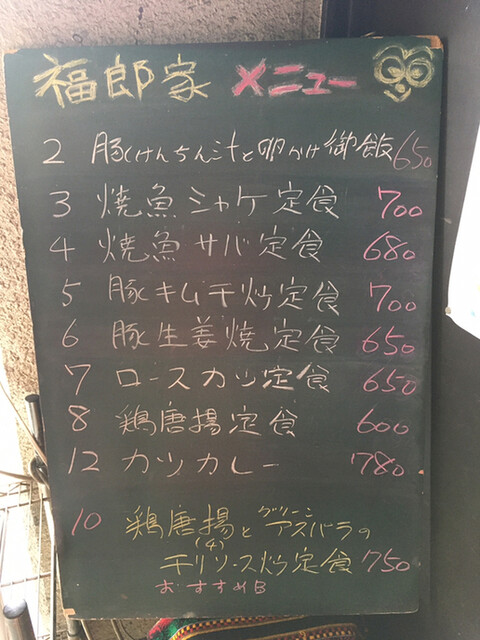 福郎家 メニュー
2 豚けんちん汁と卵かけ御飯 650
3 焼魚シャケ定食 700
4 焼魚サバ定食 680
5 豚キムチ炒定食 700
6 豚生姜焼定食 650
7 ロースカツ定食 650
8 鶏唐揚定食 600
12 カツカレー 780
10 鶏唐揚とグリーンアスパラの
(4)
チリソース炒定食 750
おすすめB